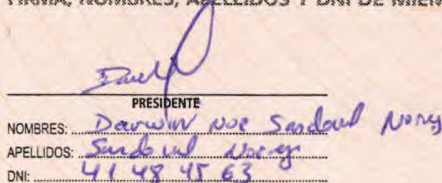 FIRMA, NOMBRES, APELLIDOS Y DNI DE MIEM
PRESIDENTE
NOMBRES: Darwin Noe Sandoval
APELLIDOS: Sandoval
DNI: 41484563